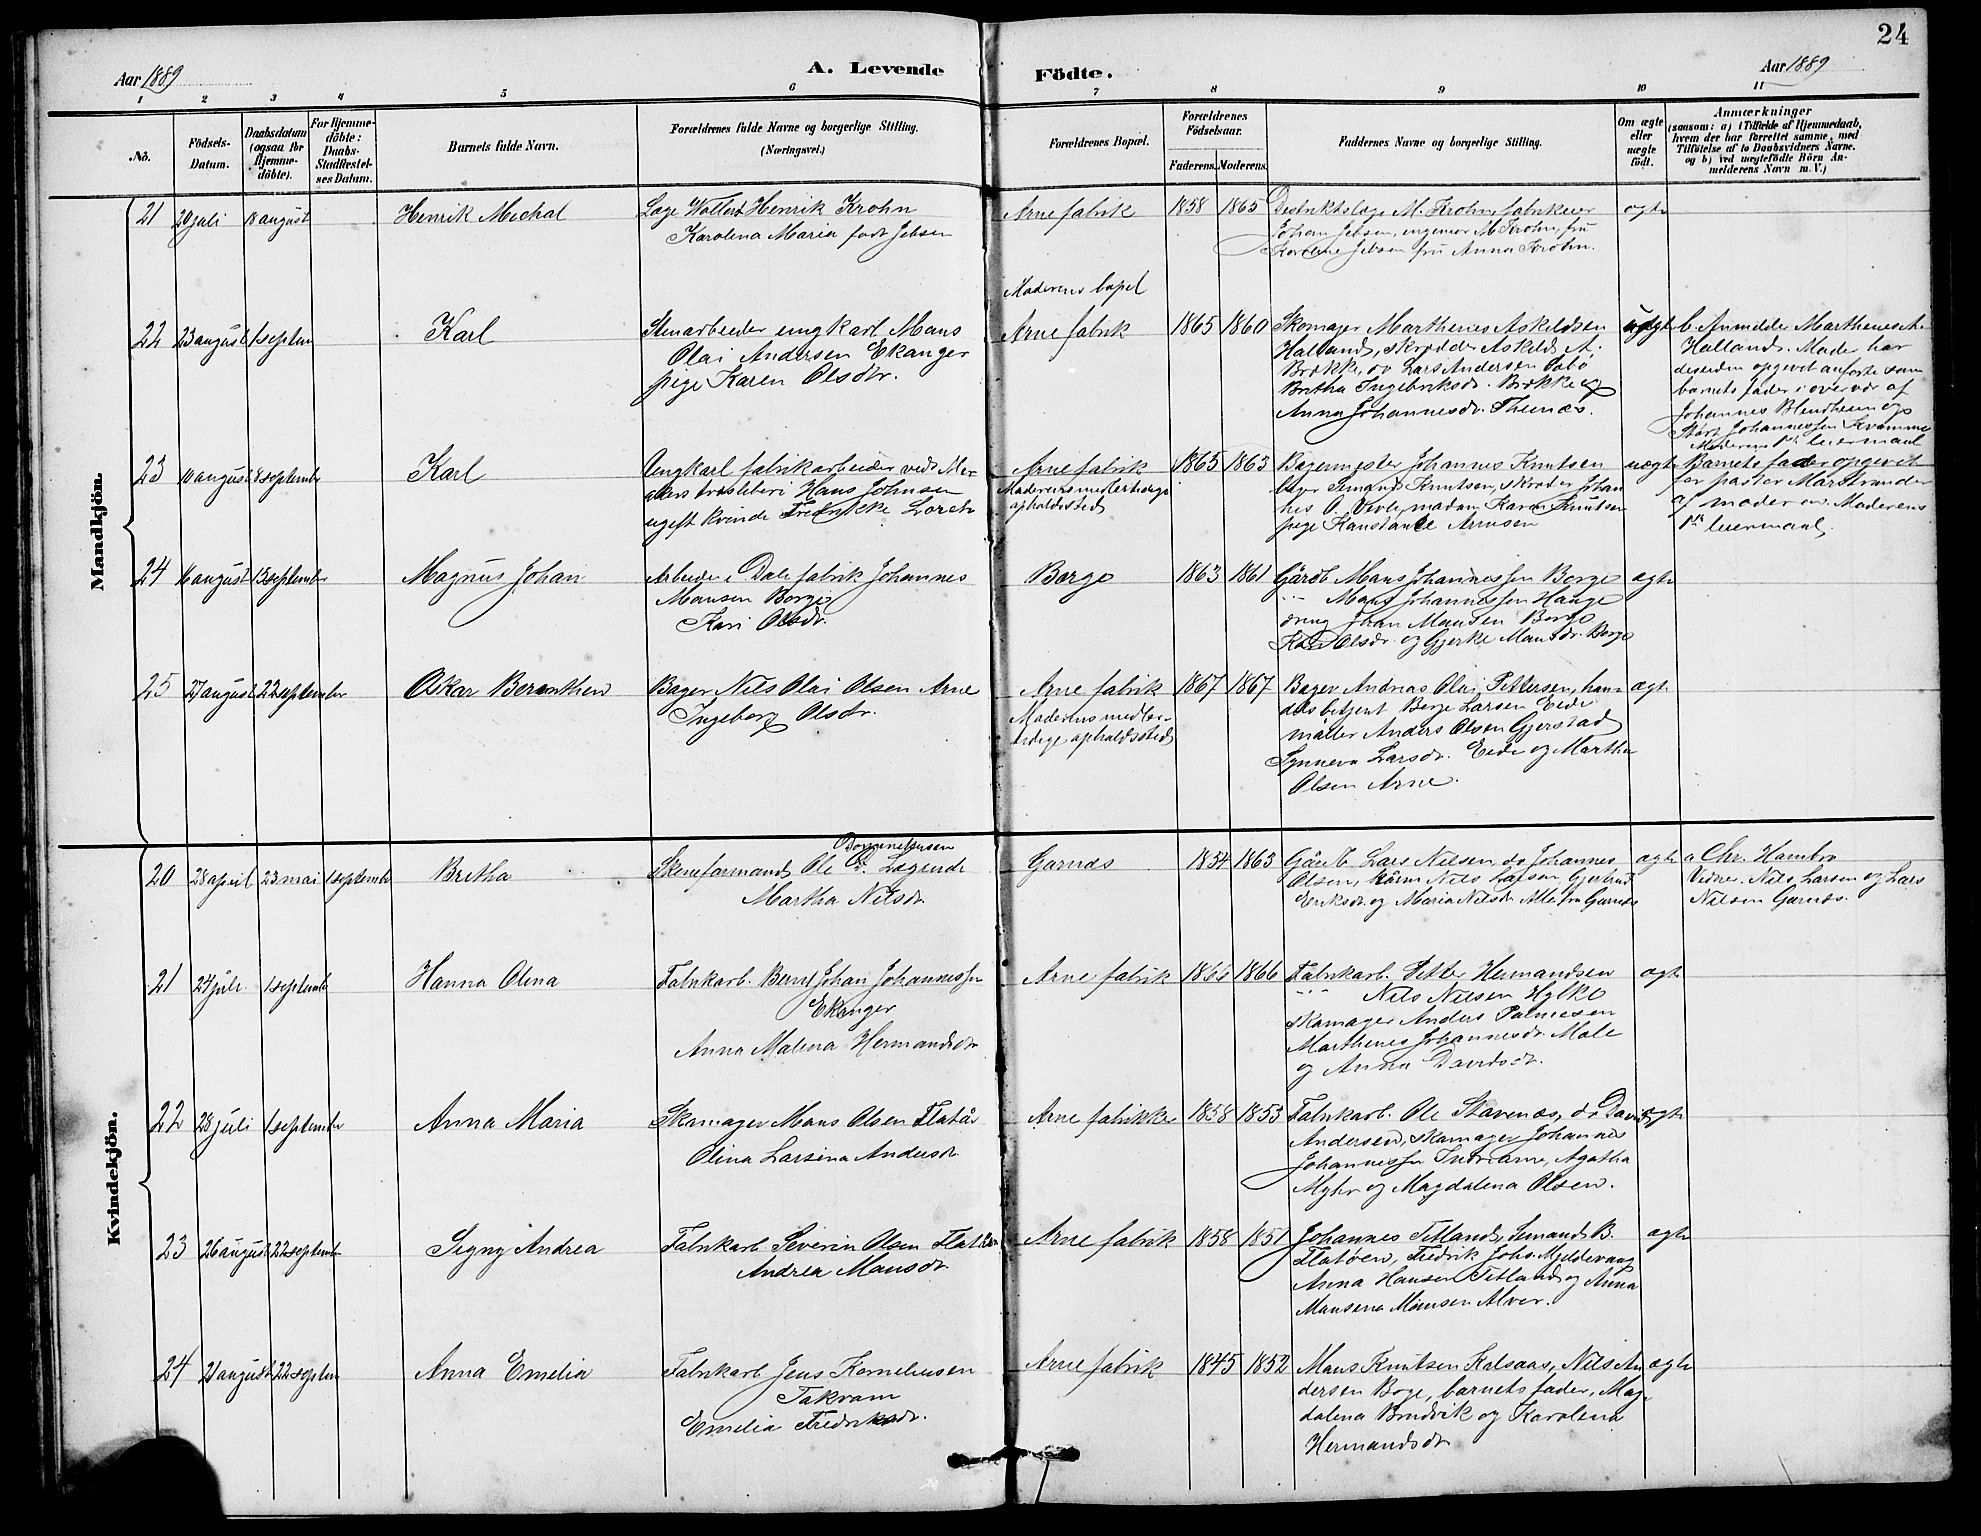 24
Aar 1889
A. Levende Födte.
Aar 1889
1 2 3 4 5 6 7 8 9 10 11
No.
Födsels-
Datum.
Daabsdatum
(ogsaa for
Hjemme-
döbte).
For Hjemme-
döbte:
Daabs-
Stadfæstel-
ses Datum.
Barnets fulde Navn.
Forældrenes fulde Navne og borgerlige Stilling.
(Næringsvei.)
Forældrenes Bopæl.
Forældrenes
Födselsaar.
Faderens. Moderens.
Faddernes Navne og borgerlige Stilling.
Om ægte
eller
uægte
födt.
Anmærkninger
(saasom: a) i Tilfælde af Hjemmedaab,
hvem der har forrettet samme, med
Tilföielse af to Daabsvidners Navne.
og b) ved uægtefödte Börn An-
melderens Navn m. V.)
Mandkjön.
21 20 juli 18 august Henrik Michal
Læge Wollert Henrik Krohn
Karolena Maria født Jebsen
Arne fabrik 1858 1865
Destriktslæge M. Krohn, fabrikeier
Johan Jebsen, ingeniør M Krohn, fru
Karoline Jebsen fru Anna Krohn.
ægte
22 23 august 1 septem Karl
Stenarbeider ungkarl Mons
Olai Andersen Ekanger
pige Karen Olsdtr.
Moderens bopel
Arne fabrik 1865 1860
Skomager Marthenes Askeldsen
Halland, skrædder Askeld A.
Brække, do Lars Andersen
Britha Ingebriktsdr. Brække og
Anna Johannesdr. Thunes.
uægte
b. Anmelder Marthenes A.
Halland. Moder har
desuden opgevet anførte som
barnets fader i overvær af
Johannes Blindheim og
Johannessen Kvamme
Moderens 1ste leiermaal
23 10 august 8 september Karl
Ungkarl fabrikarbeider ved Mer-
akers træsleberi Hans Johnsen
ugift kvinde Fredrikke Lorch
Arne fabrik
Moderens medlertidige
opholdssted
1865 1863
Bagermester Johannes Knutsen
bager Simond Knutsen, skræder Johan
nes O. Vevle, madam Karen Knutsen
pige Kanstanse Arnesen
uægte
Barnets fader opgevet
for pastor Marstrander
af moder ov. Moderens
1ste leiermaal.
24 16 august 15 september Magnus Johan
Arbeider i Dale fabrik Johannes
Monsen Borge
Kari Olsdr.
Borge 1863 1861
Gårdb Mons Johannessen Borge
Mons Johannessen Hauge
dreng Johan Monsen Borge
Kari Olsdr. og Gjerke Monsdr. Borge
ægte
25 27 august 22 september Oskar Berenthen
Bager Nils Olai Olsen Arne
Ingeborg Olsdr.
Arne fabrik
Moderens medler-
tidige opholdssted
1867 1867
Bager Andreas Olai Pettersen, han-
delsbetjent Berge Larsen Eide
møller Anders Olsen Gjerstad
Synneva Larsdr. Eide og Martha
Olsen Arne.
ægte
Kvindekjön.
20 28 april 23 mai 1 september Bretha
Skeneformand Ole Lægreid
Martha Nilsdr.
Garnæs 1834 1863
Gårdb Lars Nilsen do Johannes
Olsen, kårm Nils Larsen Gjertrud
Eriksdr og Maria Nilsdr Alle fra Garnæs
ægte
a Chr. Hambro
Vidner. Nils Larsen og Lars
Nilsen Garnæs.
21 24 juli 1 september Hanna Olena
Fabrikarb. Bernt Johan Johannessen
Ekanger
Anna Malena Hermandsdr
Arne fabrik 1866 1866
Fabrikarb. Petter Hermandsen
Nils Nilsen Hylke
skomager Anders Palnesen
Marthenes Johannesdr Male
og Anna Davidsdr.
ægte
22 28 juli 1 september Anna Maria
Skomager Mons Olsen Flatår
Olina Larsina Andersdr
Arne fabrikke 1858 1853
Fabrikarb. Ole Stavenæs, do David
Andersen, skomager Johannes
Johannessen Indrearne, Agatha
Myhr og Magdalena Olsen.
ægte
23 26 august 22 september Signy Andrea
Fabrikarb Severin Olsen Flatøen
Andrea Monsdr.
Arne fabrik 1858 1851
Johannes Titland, Simond B.
Flatøen, Fredrik Johs. Mjeldevaag
Anna Hansen Titland og Anna
Monsena Monsen Alver.
ægte
24 21 august 22 septem Anna Emelia
Fabrikarb Jens Korneliussen
Takvam
Emelia Fredriksdr.
Arne fabrik 1845 1852
Mons Knutsen Kalsaas, Nils An
dersen Boge, barnets fader, Mag-
dalena Brudvik og Karolena
Hermandsdr
ægte